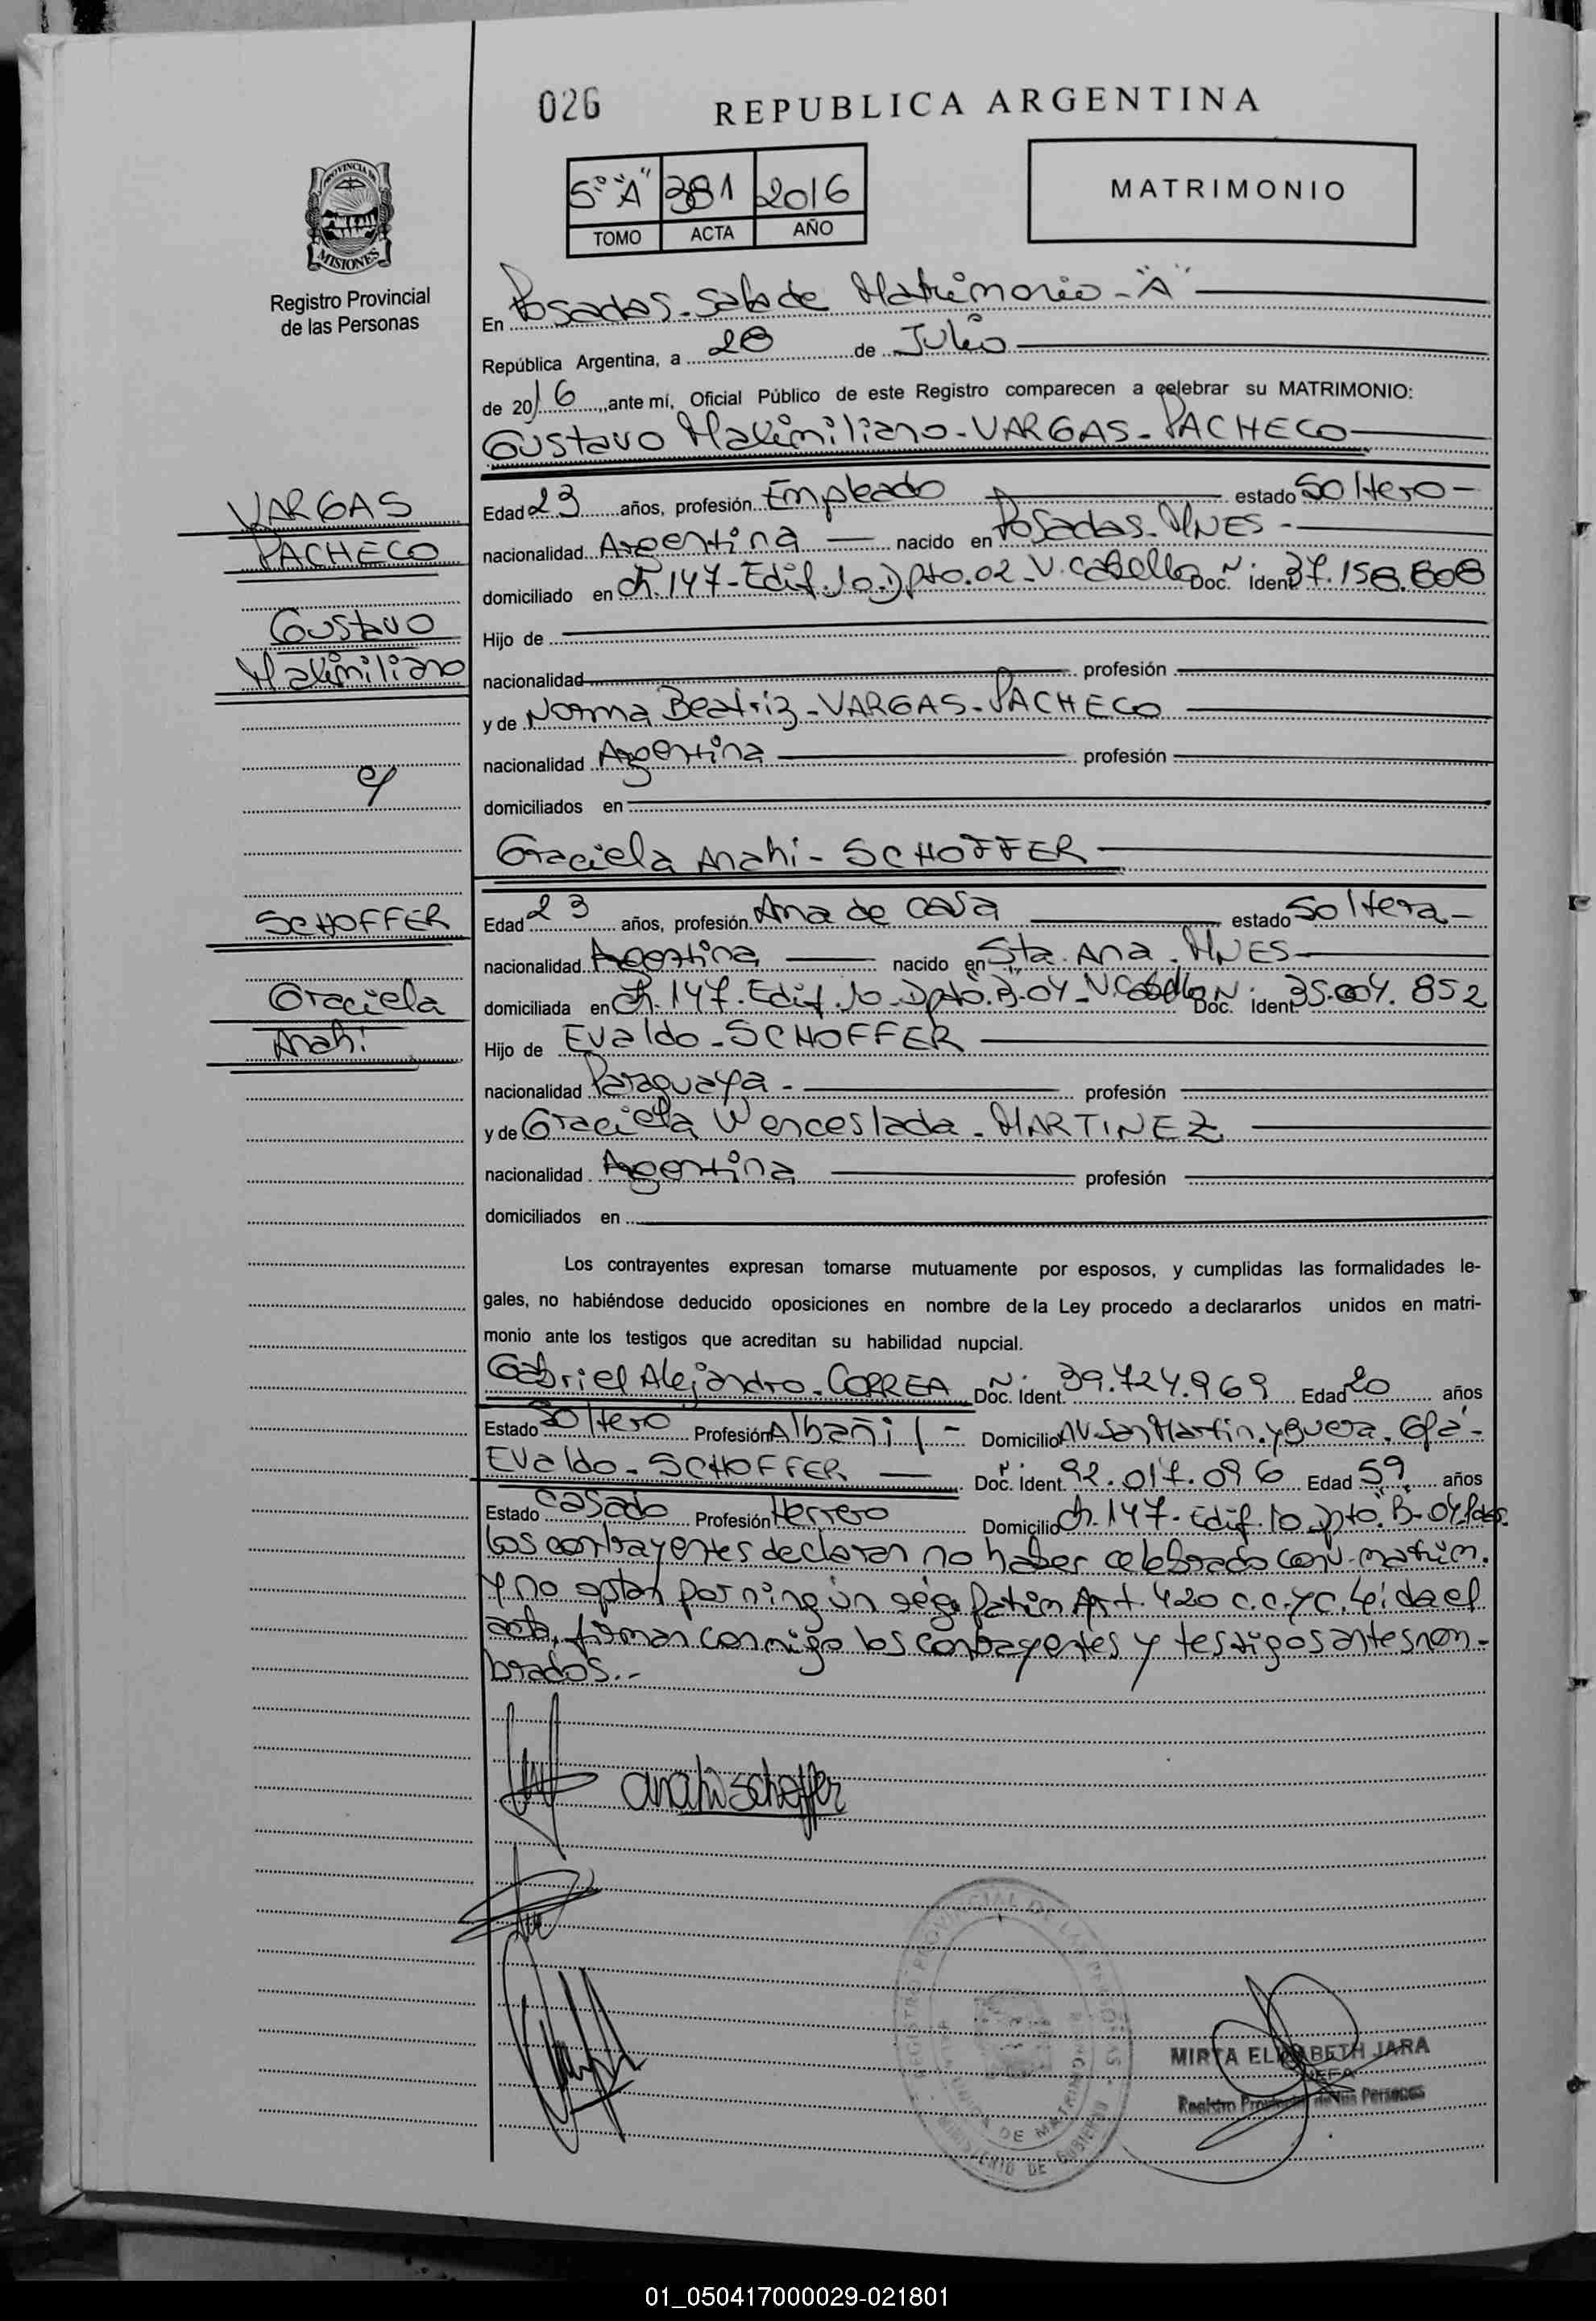 026
REPUBLICA ARGENTINA
5º "A" 381 2016
TOMO ACTA AÑO
MATRIMONIO
PROVINCIA DE
MISIONES
Registro Provincial
de las Personas
En Posadas - Sala de Matrimonio - "A"
República Argentina, a 28 de Julio
de 2016, ante mí, Oficial Público de este Registro comparecen a celebrar su MATRIMONIO:
Gustavo Maximiliano - VARGAS - PACHECO
VARGAS
PACHECO
Gustavo
Maximiliano
y
SCHOFFER
Graciela
Anahi
Edad 23 años, profesión Empleado estado Soltero -
nacionalidad Argentina nacido en Posadas - MNES -
domiciliado en Ch. 147 - Edif. 10 - Dpto. 02 - V. Cabello Doc. Nº ident. 37.158.808
Hijo de
nacionalidad profesión
y de Norma Beatriz - VARGAS - PACHECO
nacionalidad Argentina profesión
domiciliados en
Graciela Anahi - SCHOFFER
Edad 23 años, profesión Ama de casa estado Soltera -
nacionalidad Argentina nacido en Sta. Ana - MNES
domiciliada en Ch. 147 - Edif. 10 - Dpto. B-04 - V. Cabello Doc. Nº ident. 35.004.852
Hijo de Evaldo - SCHOFFER
nacionalidad Paraguaya - profesión
y de Graciela Wenceslada - MARTINEZ
nacionalidad Argentina profesión
domiciliados en
Los contrayentes expresan tomarse mutuamente por esposos, y cumplidas las formalidades le-
gales, no habiéndose deducido oposiciones en nombre de la Ley procedo a declararlos unidos en matri-
monio ante los testigos que acreditan su habilidad nupcial.
Gabriel Alejandro - CORREA Doc. Ident. 39.724.969 Edad 20 años
Estado Soltero Profesión Albañil - Domicilio AV. San Martin y Guera. Gpa -
Evaldo - SCHOFFER Doc. Ident. 92.017.096 Edad 59 años
Estado Casado Profesión Herrero Domicilio Ch. 147 - Edif. 10 Dpto. B-04 Pdas.
Los contrayentes declaran no haber celebrado conv. matrim.
y no optan por ningún régi. patrim Art. 420 c.c.yc. Leida el
acta, firman conmigo los contrayentes y testigos antes nom-
brados.-
anahi schoffer
REGISTRO PROVINCIAL DE LAS PERSONAS
MINISTERIO DE GOBIERNO
MIRTA ELIZABETH JARA
JEFA
Registro Provincial de las Personas
01_050417000029-021801